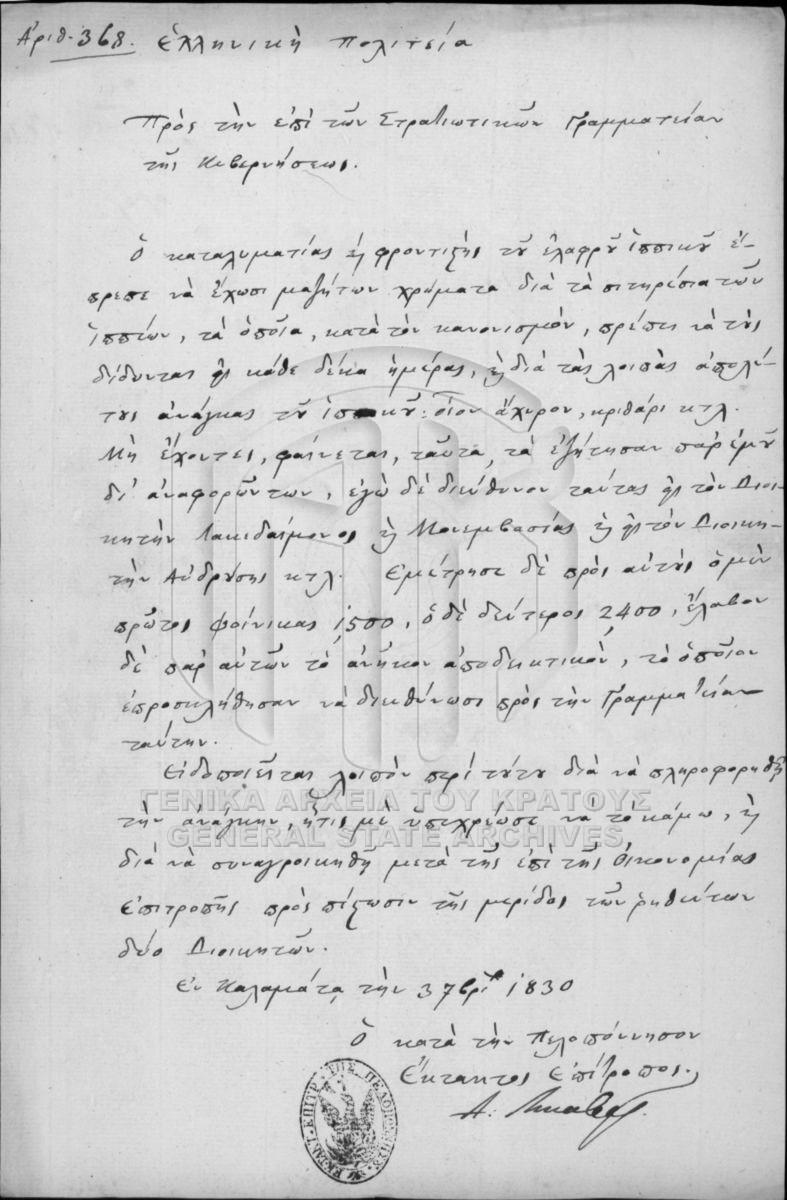 Ἀριθ. 368. Ἑλληνικὴ Πολιτεία
Πρὸς τὴν ἐπὶ τῶν Στρατιωτικῶν Γραμματείαν
τῆς Κυβερνήσεως.
Ὁ καταλυματίας ἢ φροντιςὴς τοῦ ἐλαφροῦ ἱππικοῦ ἔ-
πρεπε νὰ ἔχωσι μαζήτων χρήματα διὰ τὰ σιτηρέσια τῶν
ἱππέων, τὰ ὁποῖα, κατὰ τὸν κανονισμὸν, πρέπει νὰ τοὺς
δίδονται κάθε δέκα ἡμέρας, καὶ διὰ τὰς λοιπὰς ἀπολύ-
τους ἀνάγκας τοῦ ἱππικοῦ: οἷον ἄχυρον, κριθάρι κτλ.
Μὴ ἔχοντες, φαίνεται, ταῦτα, τὰ ἐζήτησαν παρ' ἐμοῦ
δι' ἀναφορῶντων, ἐγὼ δὲ διεύθυνον ταύτας εἰς τὸν Διοι-
κητὴν Λακεδαίμονος καὶ Μονεμβασίας καὶ εἰς τὸν Διοικη-
τὴν Ἀνδρούσης κτλ. Ἐμέτρησε δὲ πρὸς αὐτοὺς ὁ μὲν
πρῶτος φοίνικας 1500, ὁ δὲ δεύτερος 2400, ἔλαβον
δὲ παρ' αὐτῶν τὸ ἀνῆκον ἀποδεικτικὸν, τὸ ὁποῖον
ἐπροσκλήθησαν νὰ διευθύνωσι πρὸς τὴν Γραμματείαν
ταύτην.
Εἰδοποιεῖται λοιπὸν περὶ τούτου διὰ νὰ πληροφορηθῇ
τὴν ἀνάγκην, ἥτις μὲ ὑπεχρέωσε νὰ τὸ κάμω, καὶ
διὰ νὰ συναγροικηθῇ μετὰ τῆς ἐπὶ τῆς Οἰκονομίας
Ἐπιτροπῆς πρὸς πίςωσιν τῆς μερίδος τῶν ῥηθέντων
δύο Διοικητῶν.
Ἐν Καλαμάτᾳ τὴν 3 7βρίου 1830
Ὁ κατὰ τὴν Πελοπόννησον
Ἔκτακτος Ἐπίτροπος.
ΓΕΝΙΚΑ ΑΡΧΕΙΑ ΤΟΥ ΚΡΑΤΟΥΣ
GENERAL STATE ARCHIVES